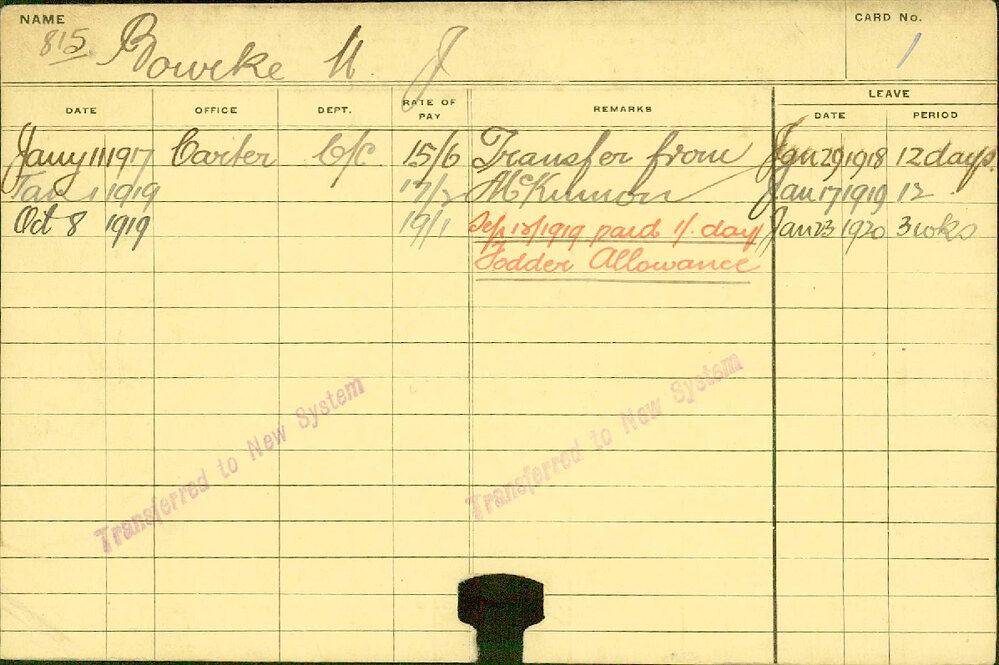 NAME
CARD No.
815 Bourke M J
1
DATE OFFICE DEPT. RATE OF PAY REMARKS LEAVE
DATE PERIOD
Jany 11 1917 Carter C/C 15/6 Transfer from Jan 29 1918 12 days
Jan 1 1919 17/2 McKinnon Jan 17 1919 12
Oct 8 1919 19/1 Sep 12/1919 paid 1/. day Jan 23 1920 3 wks
Fodder Allowance
Transferred to New System
Transferred to New System